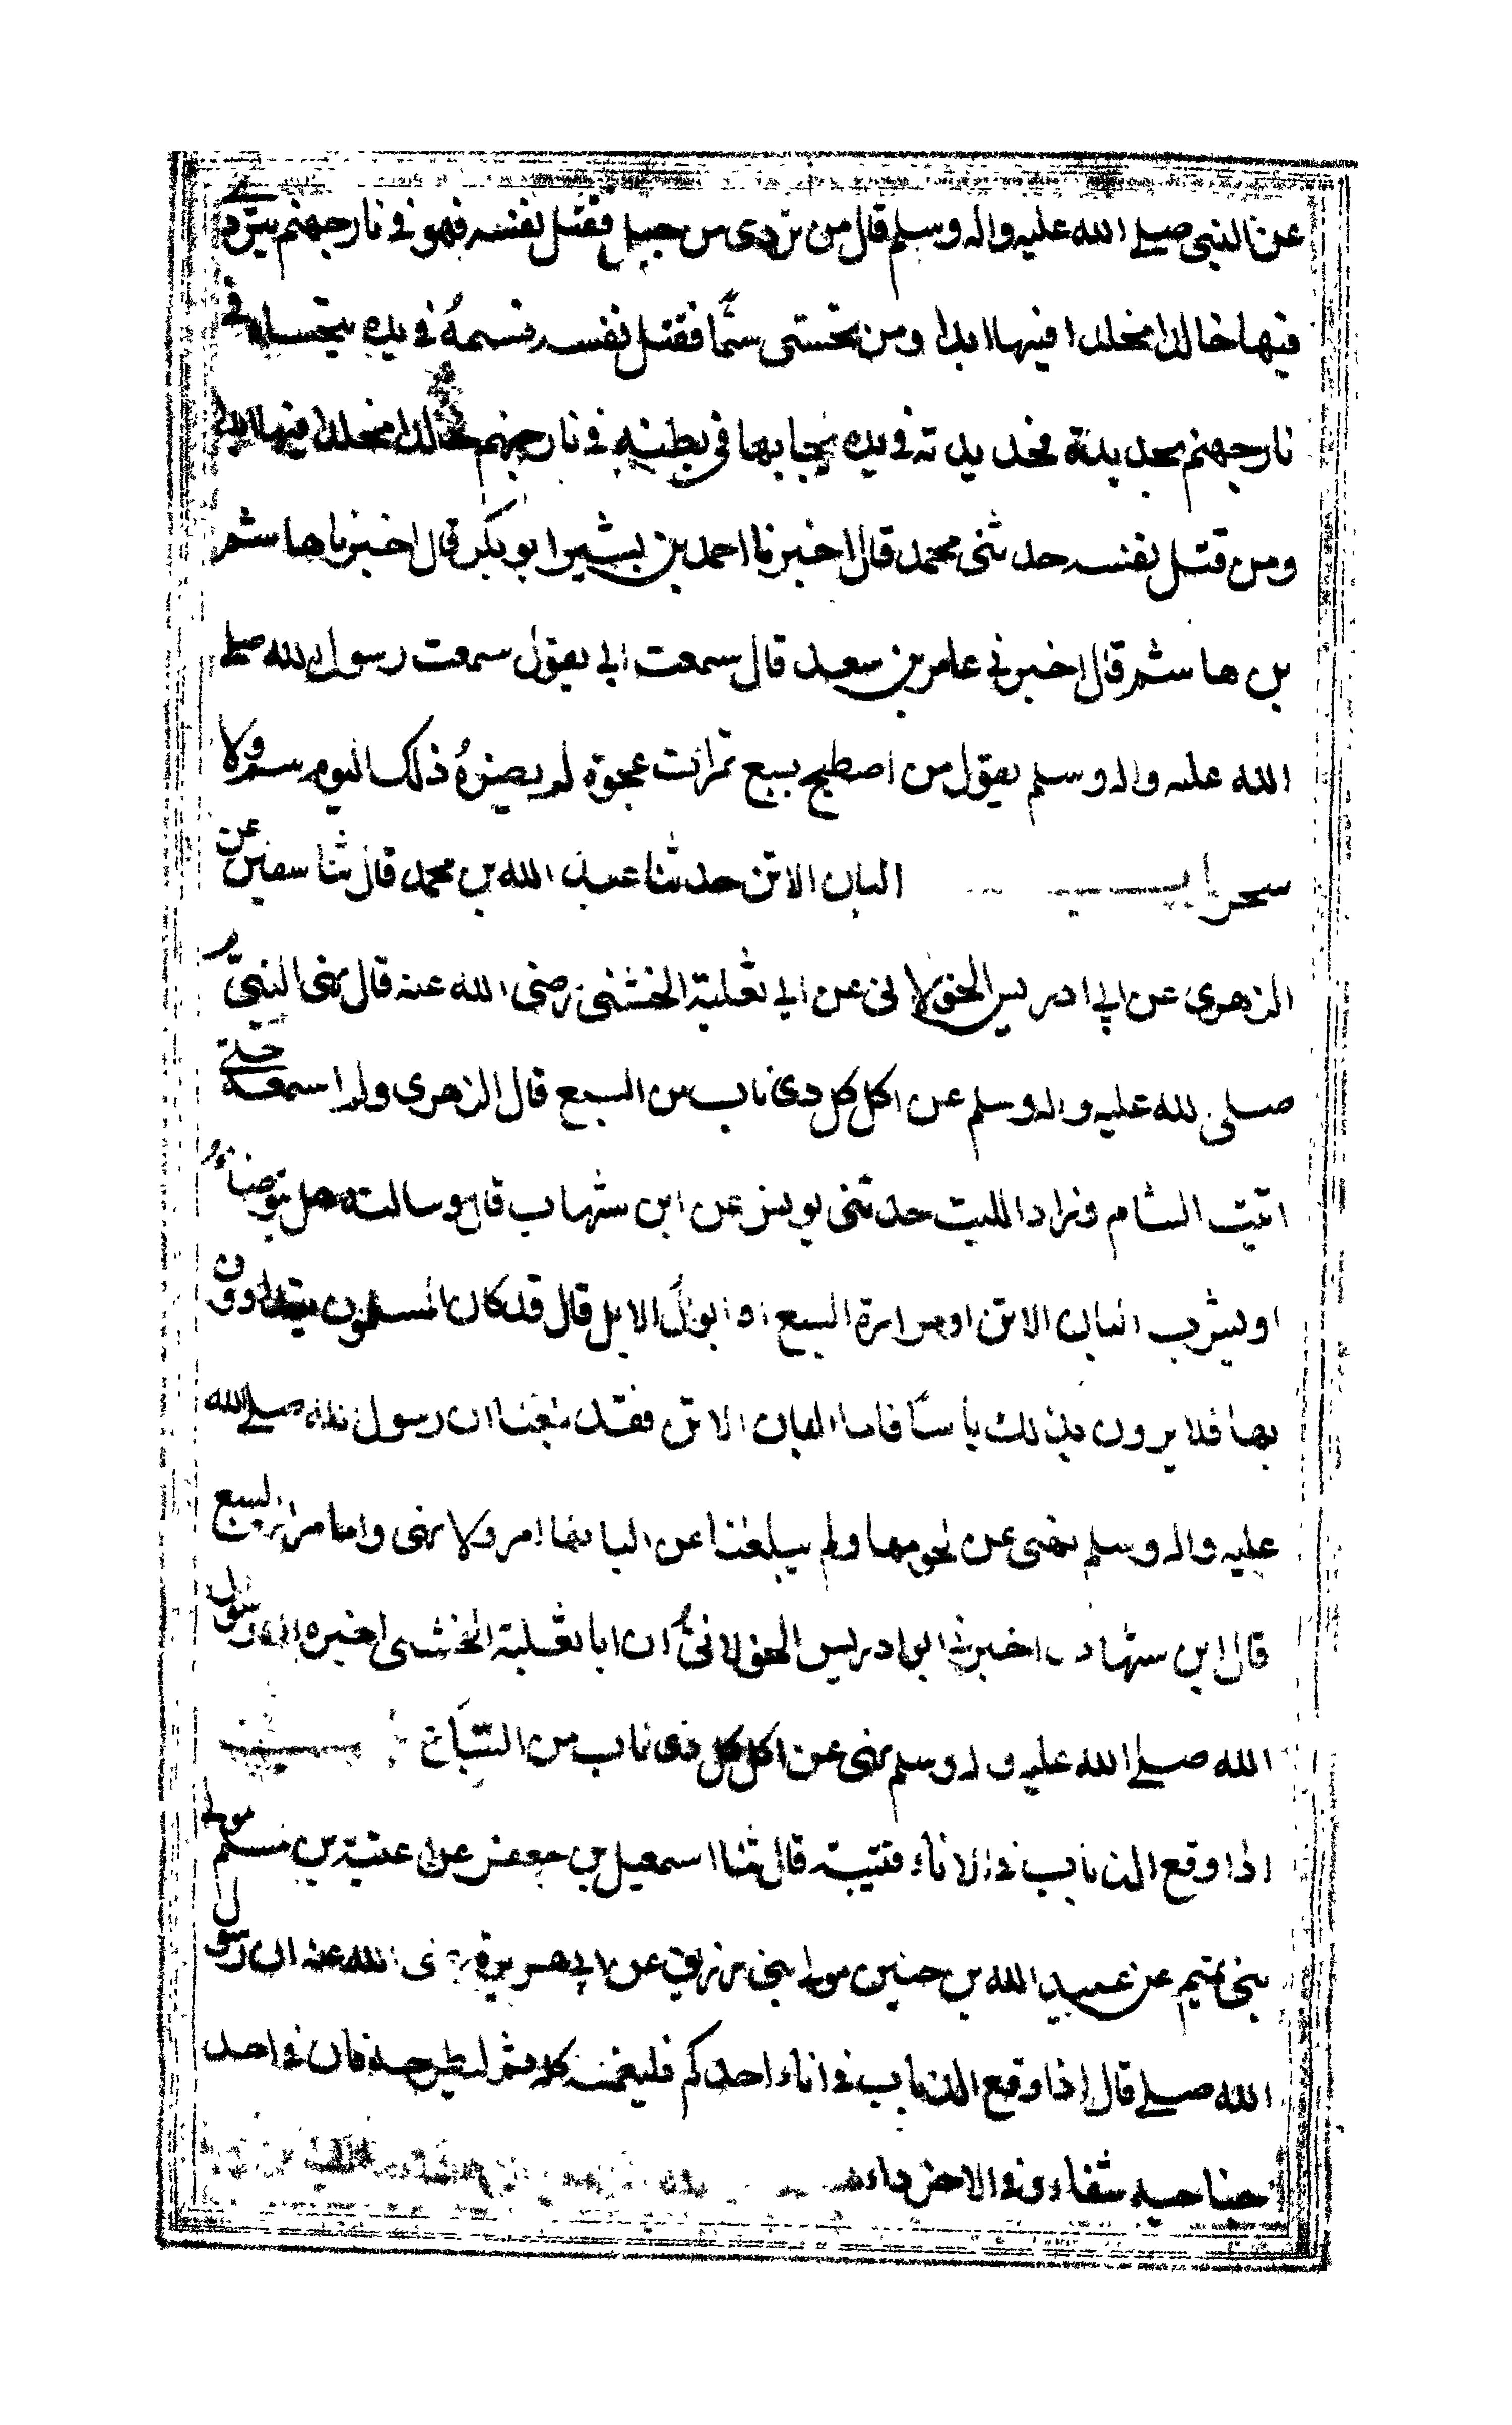 عن النبي صلے الله عليه واله وسلم قال من تردى من جبل فقتل نفسه فهو في نار جهنم يتردے
فيها خالدا مخلدا فيها ابدا ومن تحسى سمّا فقتل نفسه فسمه في يده يتحساه في
نار جهنم بحديدة فحديدته في يده يجا بها في بطنه في نار جهنم خالدا مخلدا فيها ابدا
ومن قتل نفسه حدثنى محمد قال اخبرنا احمد بن بشير ابو بكر قال اخبرنا هاشم
بن هاشم قال اخبرنى عامر بن سعد قال سمعت ابى يقول سمعت رسول الله صلے
الله عليه واله وسلم يقول من اصطبح بسبع تمرات عجوة لم يضره ذلك اليوم سم ولا
سحر باب البان الاتن حدثنا عبد الله بن محمد قال ثنا سفين عن
الزهرى عن ابى ادريس الخولانى عن ابى ثعلبة الخشنى رضى الله عنه قال نهى النبيّ
صلى الله عليه واله وسلم عن اكل كل ذى ناب من السبع قال الزهرى ولم اسمعه حتے
اتيت الشام وزاد الليث حدثنى يونس عن ابن شهاب قال وسالته هل يتوضاء
او يشرب البان الاتن او مرارة السبع او ابوال الابل قال قد كان المسلمون يتداوون
بها فلا يرون بذلك باسا فاما البان الاتن فقد بلغنا ان رسول الله صلے الله
عليه واله وسلم نهى عن لحومها ولم يبلغنا عن البانها امر ولا نهى واما مرارة السبع
قال ابن شهاب اخبرنى ابو ادريس الخولانى ان ابا ثعلبة الخشنى اخبره ان رسول
الله صلے الله عليه واله وسلم نهى عن اكل كل ذى ناب من السّباع باب
اذا وقع الذباب في الاناء قتيبة قال ثنا اسمعيل بن جعفر عن عتبة بن مسلم مولے
بنى تميم عن عبيد الله بن حنين مولے بنى زريق عن ابى هريرة رضى الله عنه ان رسول
الله صلے قال اذا وقع الذباب في اناء احدكم فليغمسه كله ثم ليطرحه فان في احد
جناحيه شفاء وفي الاخر داء